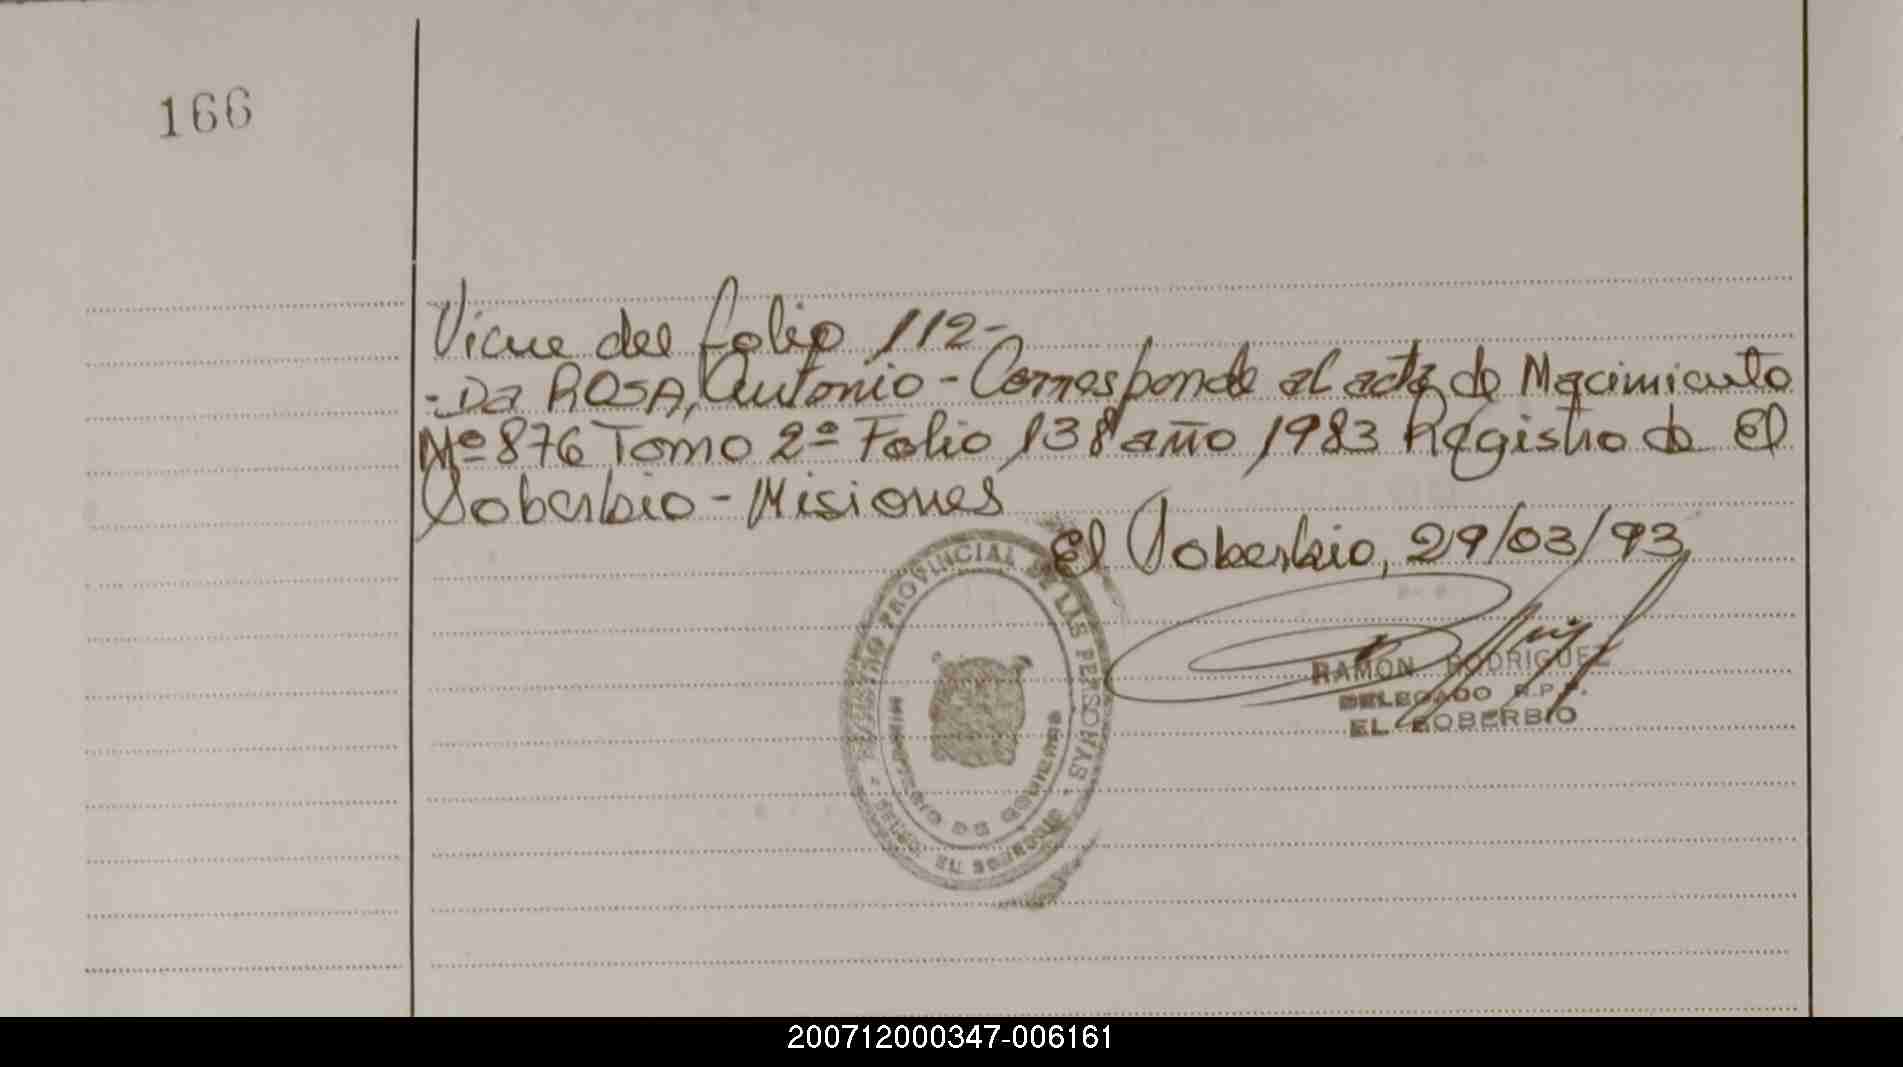 166
Viene del folio 112-
- Da ROSA, Antonio - Corresponde al acta de Nacimiento
Nº 876 Tomo 2º Folio 138 año 1983 Registro de El
Soberbio - Misiones
El Soberbio, 29/03/93
REGISTRO PROVINCIAL DE LAS PERSONAS
MINISTERIO DE GOBIERNO
RAMON RODRIGUEZ
DELEGADO R.P.P.
EL SOBERBIO
200712000347-006161